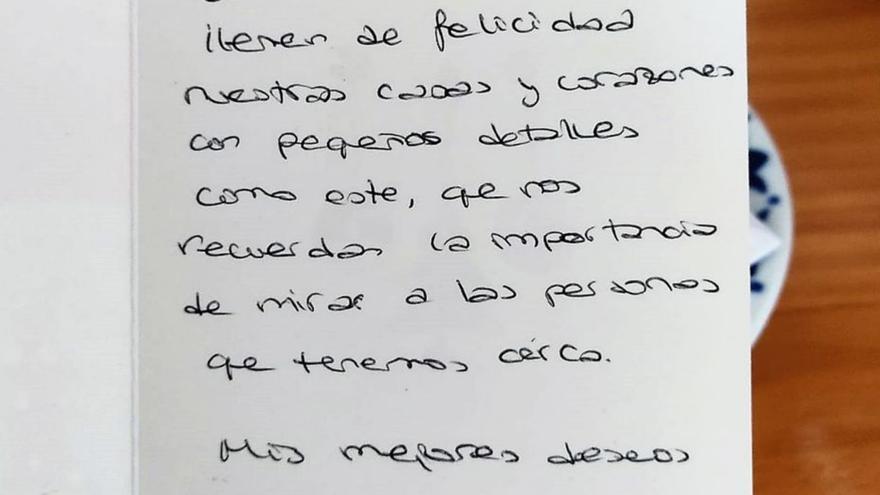 llenen de felicidad
nuestras casas y corazones
con pequeños detalles
como este, que nos
recuerdan la importancia
de mirar a las personas
que tenemos cerca.
Mis mejores deseos